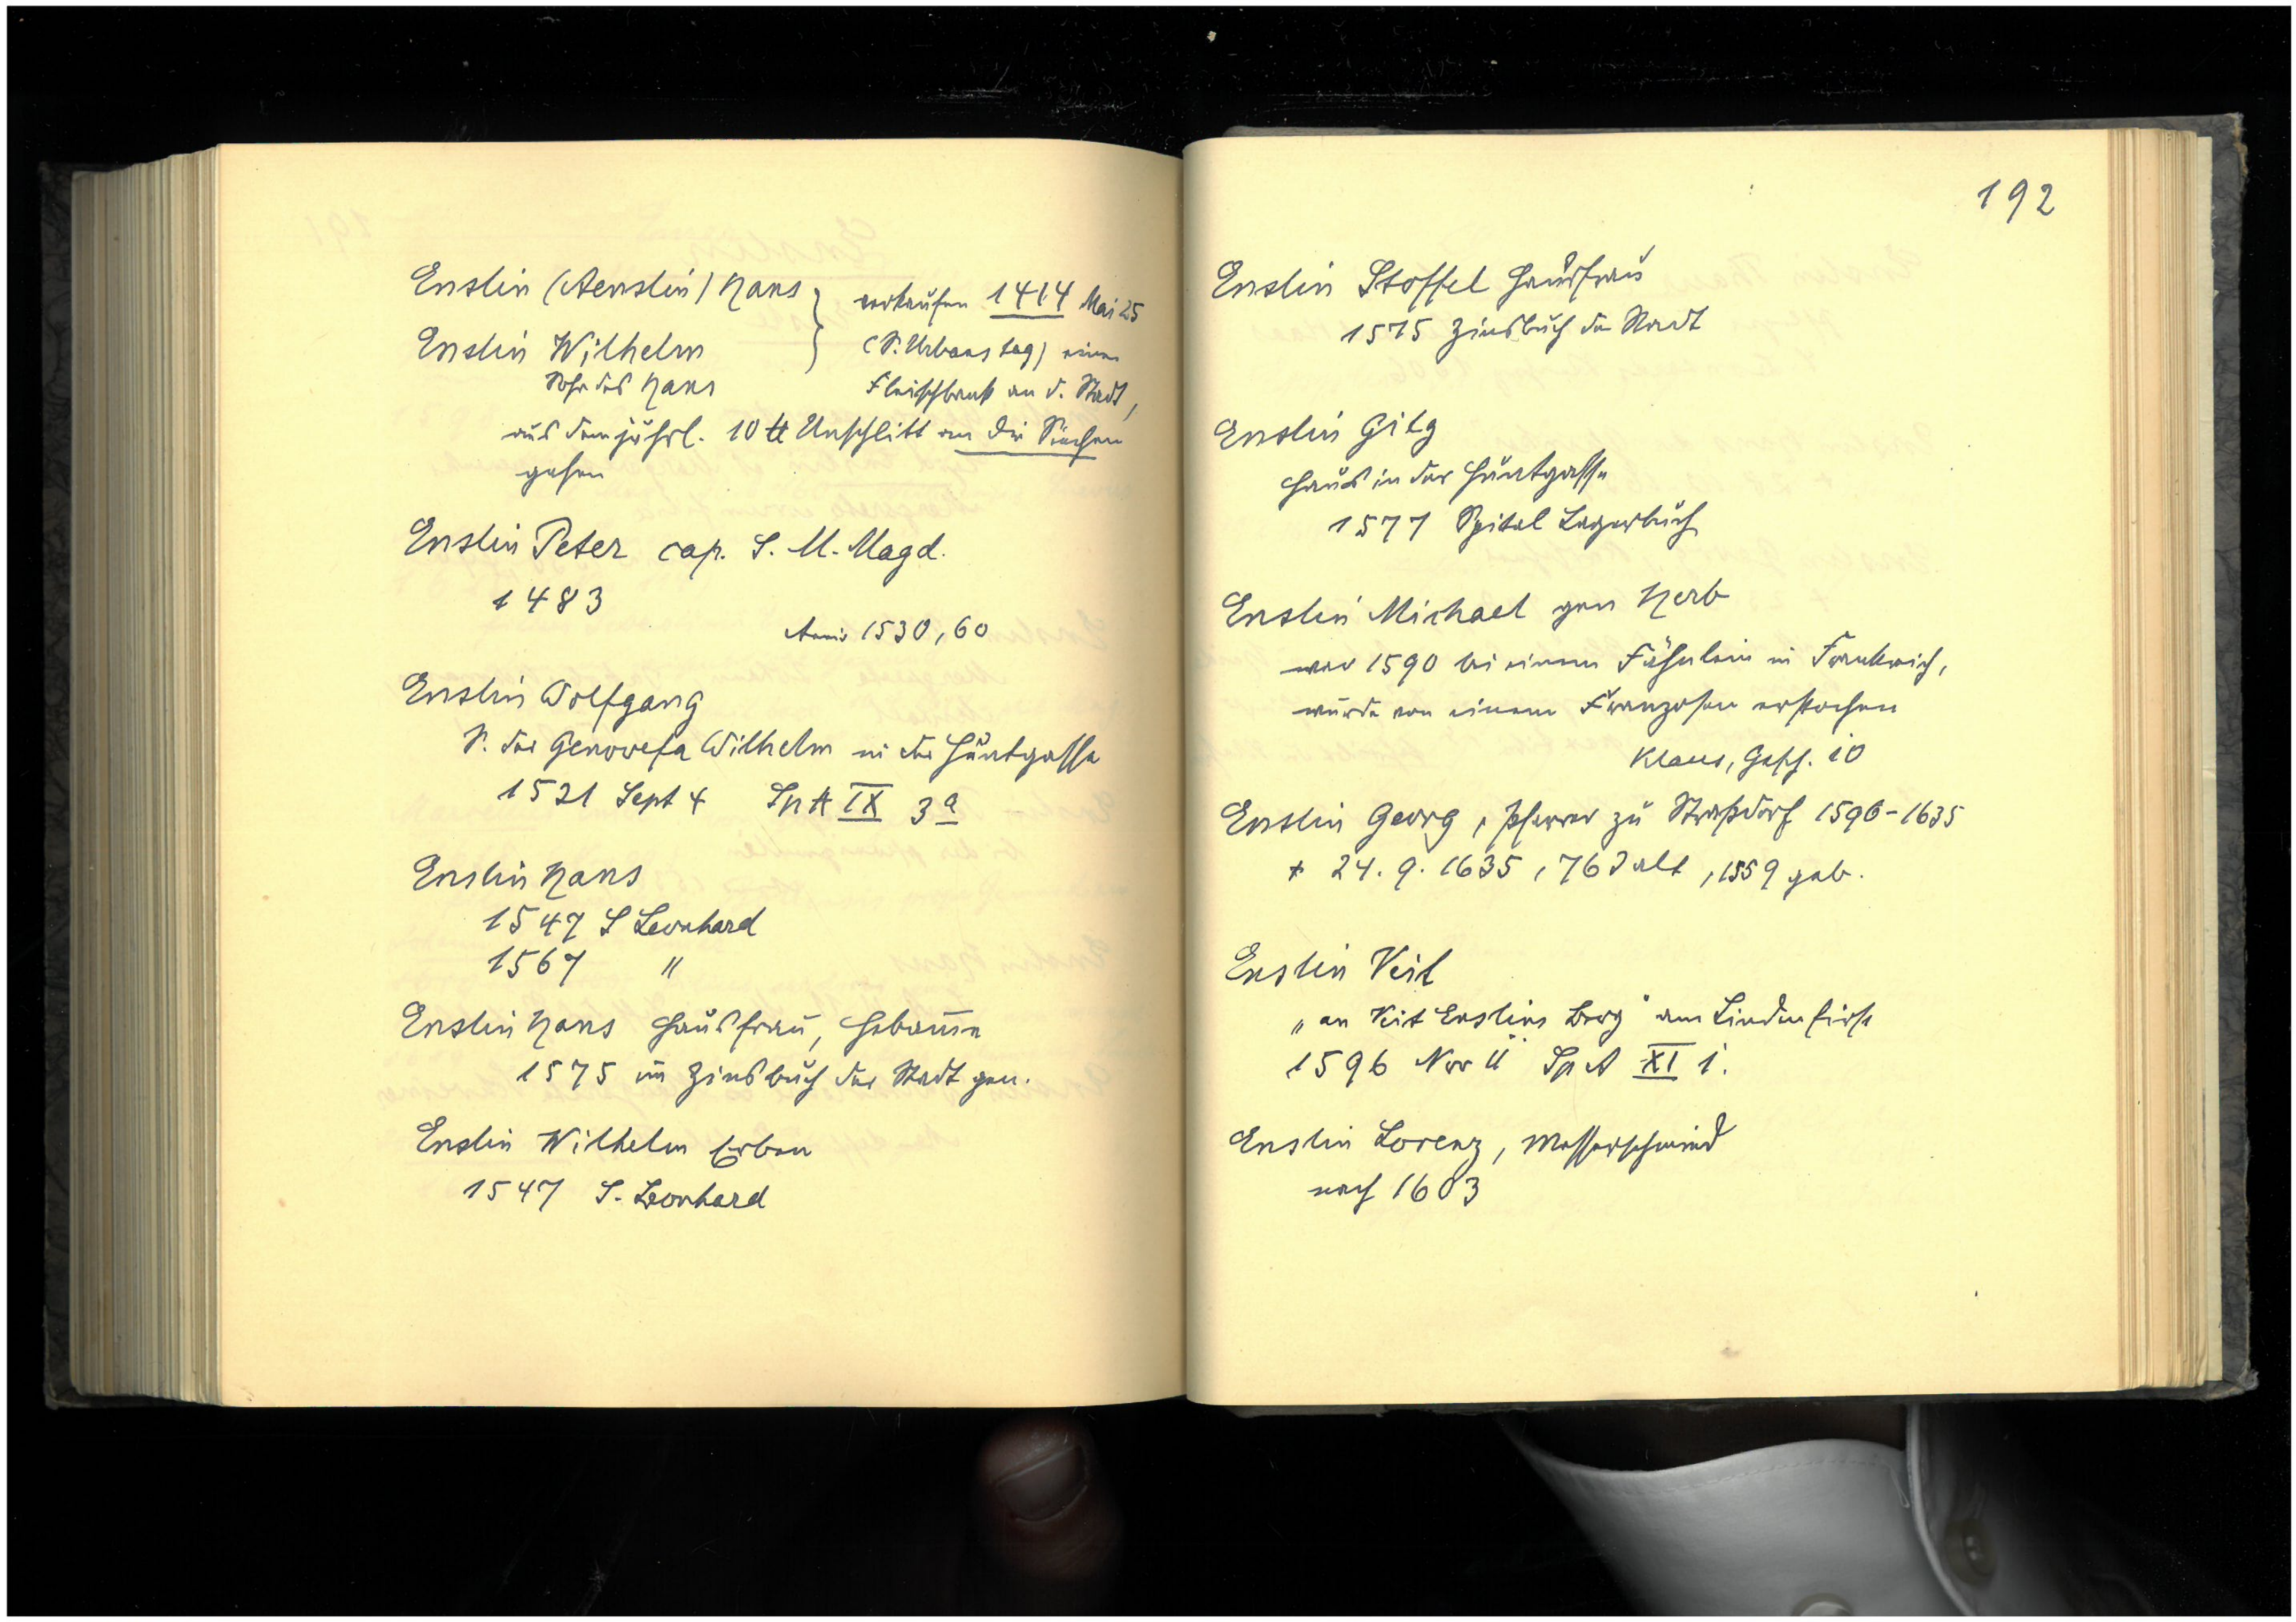 Enslin (Aenslin) Hans } verkaufen 1414 Mai 25
Enslin Wilhelm (S. Urbans tag) eine
Sohn des Hans Fleischbank an d. Stadt,
aus dem jährl. 10 ℔ Unschlitt an die Siechen
gehen
Enslin Peter cap. S. M. Magd.
1483
1530, 60
Enslin Wolfgang
S. der Genovefa Wilhelm in der Hüntgasse
1521 Sept 4 Sp A IX 3a
Enslin Hans
1547 S Leonhard
1567 "
Enslin Hans Hausfrau, Hebamme
1575 im Zinsbuch der Stadt gen.
Enslin Wilhelm Erben
1547 S. Leonhard
192
Enslin Stoffel Hausfrau
1575 Zinsbuch der Stadt
Enslin Gilg
Haus in der Hüntgasse
1577 Spital Lagerbuch
Enslin Michael gen Herb
war 1590 bei einem Fähnlein in Frankreich,
wurde von einem Franzosen erstochen
Klaus, Gesch. 10
Enslin Georg, Pfarrer zu Straßdorf 1596-1635
+ 24. 9. 1635, 76 J alt, 1559 geb.
Enslin Veit
„an Veit Enslins Berg" am Lindenfirst
1596 Nov 11 Sp A XI 1.
Enslin Lorenz, Messerschmied
nach 1603